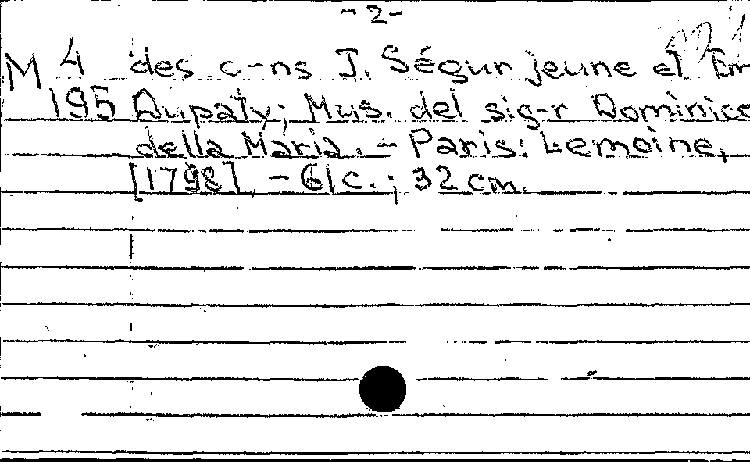 - 2 -
M 4 des c-ns J. Ségur jeune et Em
195 Dupaty; Mus. del sig-r Dominico
della Maria. - Paris: Lemoine,
[1798]. - 61 c.; 32 cm.